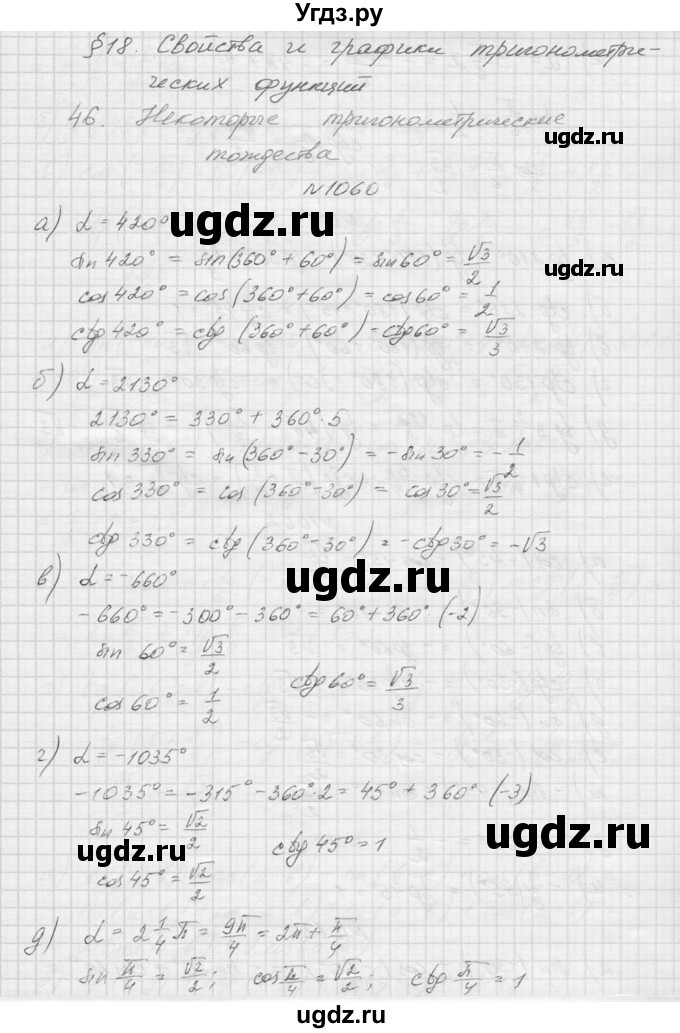 Угдз.ру
§18. Свойства и графики тригонометри-
ческих функций
46. Некоторые тригонометрические
тождества
ugdz.ru
№1060
а) α = 420°
ugdz.ru
sin 420° = sin(360° + 60°) = sin 60° = √3/2
ugdz.ru
cos 420° = cos(360° + 60°) = cos 60° = 1/2
ctg 420° = ctg (360° + 60°) = ctg 60° = √3/3
ugdz.ru
б) α = 2130°
ugdz.ru
2130° = 330° + 360°·5
sin 330° = sin (360° - 30°) = - sin 30° = - 1/2
cos 330° = cos (360° - 30°) = cos 30° = √3/2
ugdz.ru
ctg 330° = ctg (360° - 30°) = - ctg 30° = - √3
в) α = -660°
ugdz.ru
-660° = -300° - 360° = 60° + 360° · (-2)
sin 60° = √3/2
ctg 60° = √3/3
ugdz.ru
cos 60° = 1/2
г) α = -1035°
ugdz.ru
-1035° = -315° - 360°·2 = 45° + 360° · (-3)
sin 45° = √2/2
ctg 45° = 1
ugdz.ru
ugdz.ru
cos 45° = √2/2
д) α = 2 1/4 π = 9π/4 = 2π + π/4
ugdz.ru
sin π/4 = √2/2; cos π/4 = √2/2; ctg π/4 = 1